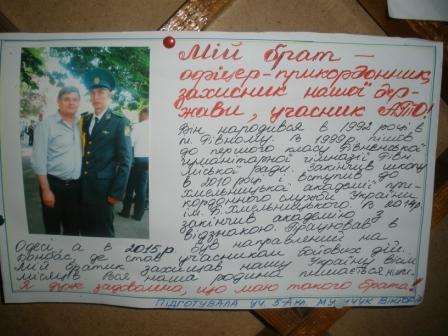 Мій брат –
офіцер-прикордонник,
захисник нашої дер-
жави, учасник АТО!
Він народився в 1992 році в
м. Рівному. В 1998р. пішов
до першого класу Рівненської
гуманітарної гімназії Рівн
міської ради. Закінчив школу
в 2010 році і вступив до
Хмельницької академії при-
кордонної служби України
ім. Б. Хмельницького. В 2014р.
закінчив академію з
відзнакою. Працював в
Одесі, а в 2015 р. був направлений на
Донбас, де став учасником бойових дій.
Мій братик захищав нашу Україну вісім
місяців. Вся наша родина пишається ним.
Я дуже задоволена, що маю такого брата!
ПІДГОТУВАЛА УЧ. 5-А кл.